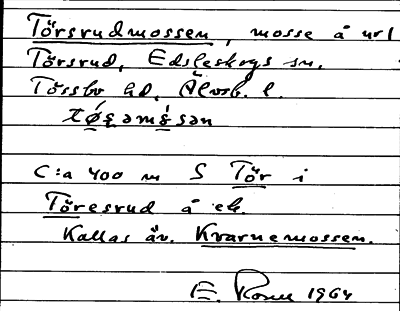 Törsrudmossen, mosse å url
Törsrud, Edsleskogs sn.
Tössbo hd, Älvsb. l.
tø̀ʂəmɷ̀sən
C:a 400 m S Tör i
Töresrud å ek.
Kallas äv. Kvarnemossen.
E. 1964